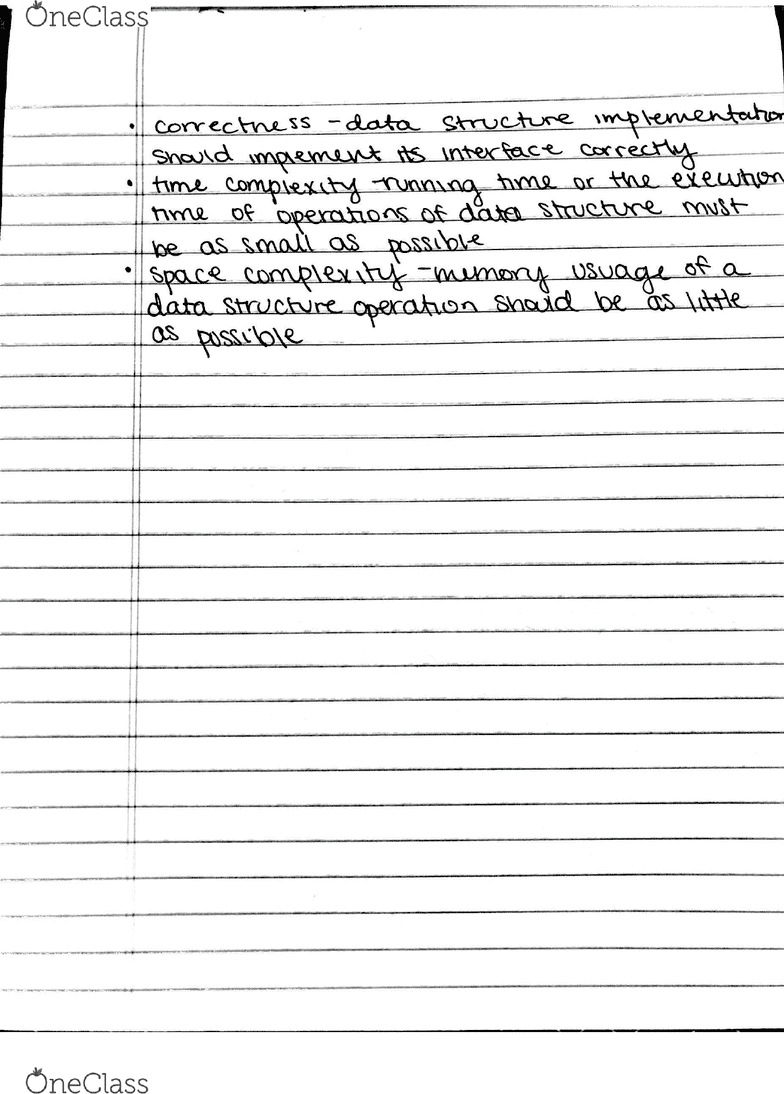 OneClass
• correctness - data structure implementation
should implement its interface correctly
• time complexity - running time or the execution
time of operations of data structure must
be as small as possible
• space complexity - memory usuage of a
data structure operation should be as little
as possible
OneClass